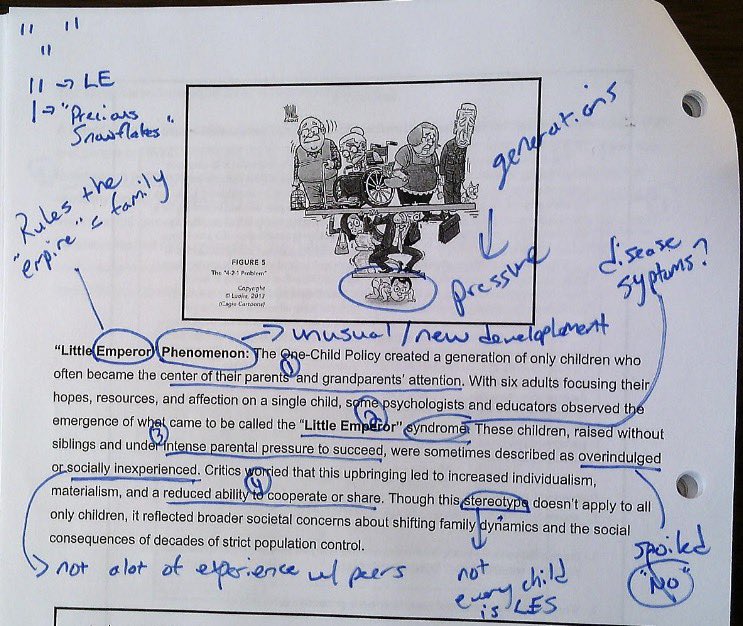 " "
"
11 → LE
1 → "Precious
Snowflakes"
Rules the
"empire" = family
generations
pressure
disease
syptoms?
FIGURE 5
The "4-2-1 Problem"
Copyright
(Cagle Cartoons)
→ unusual / new development
"Little Emperor Phenomenon: The One-Child Policy created a generation of only children who
often became the center of their parents' and grandparents' attention. With six adults focusing their
hopes, resources, and affection on a single child, some psychologists and educators observed the
emergence of what came to be called the "Little Emperor" syndrome. These children, raised without
siblings and under intense parental pressure to succeed, were sometimes described as overindulged
or socially inexperienced. Critics worried that this upbringing led to increased individualism,
materialism, and a reduced ability to cooperate or share. Though this stereotype doesn't apply to all
only children, it reflected broader societal concerns about shifting family dynamics and the social
consequences of decades of strict population control.
1
2
3
4
→ not alot of experience w/ peers
not
every child
is LES
spoiled
"No"